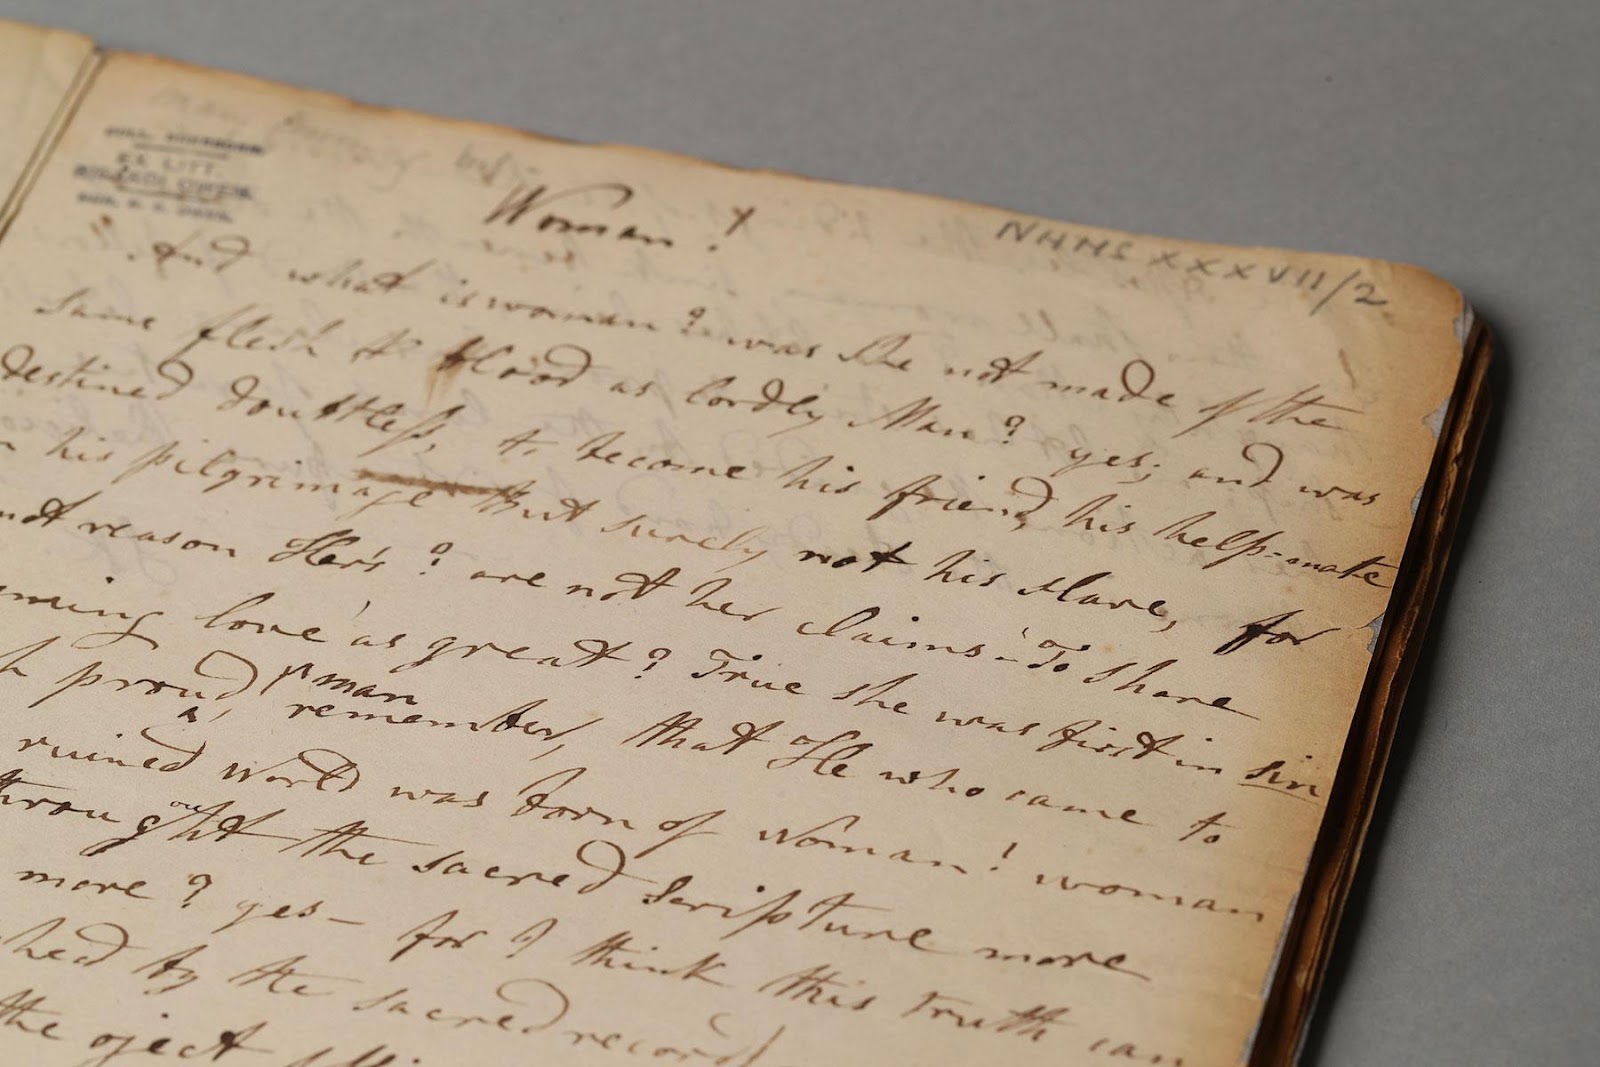 Woman!
NHMS XXXVII/2
EX LITT.
And what is woman? was She not made of the
same flesh & blood as lordly Man? yes; and was
destined doubtless, to become his friend, his help-mate
his pilgrimage but surely not his slave, for
not reason Her's? are not her claims - To share
love as great? True she was first in sin
proud man, remember, that He who came to
ruined world was born of woman! woman
throughout the sacred Scripture more
more? yes – for I think this truth can
by the sacred record
the oject